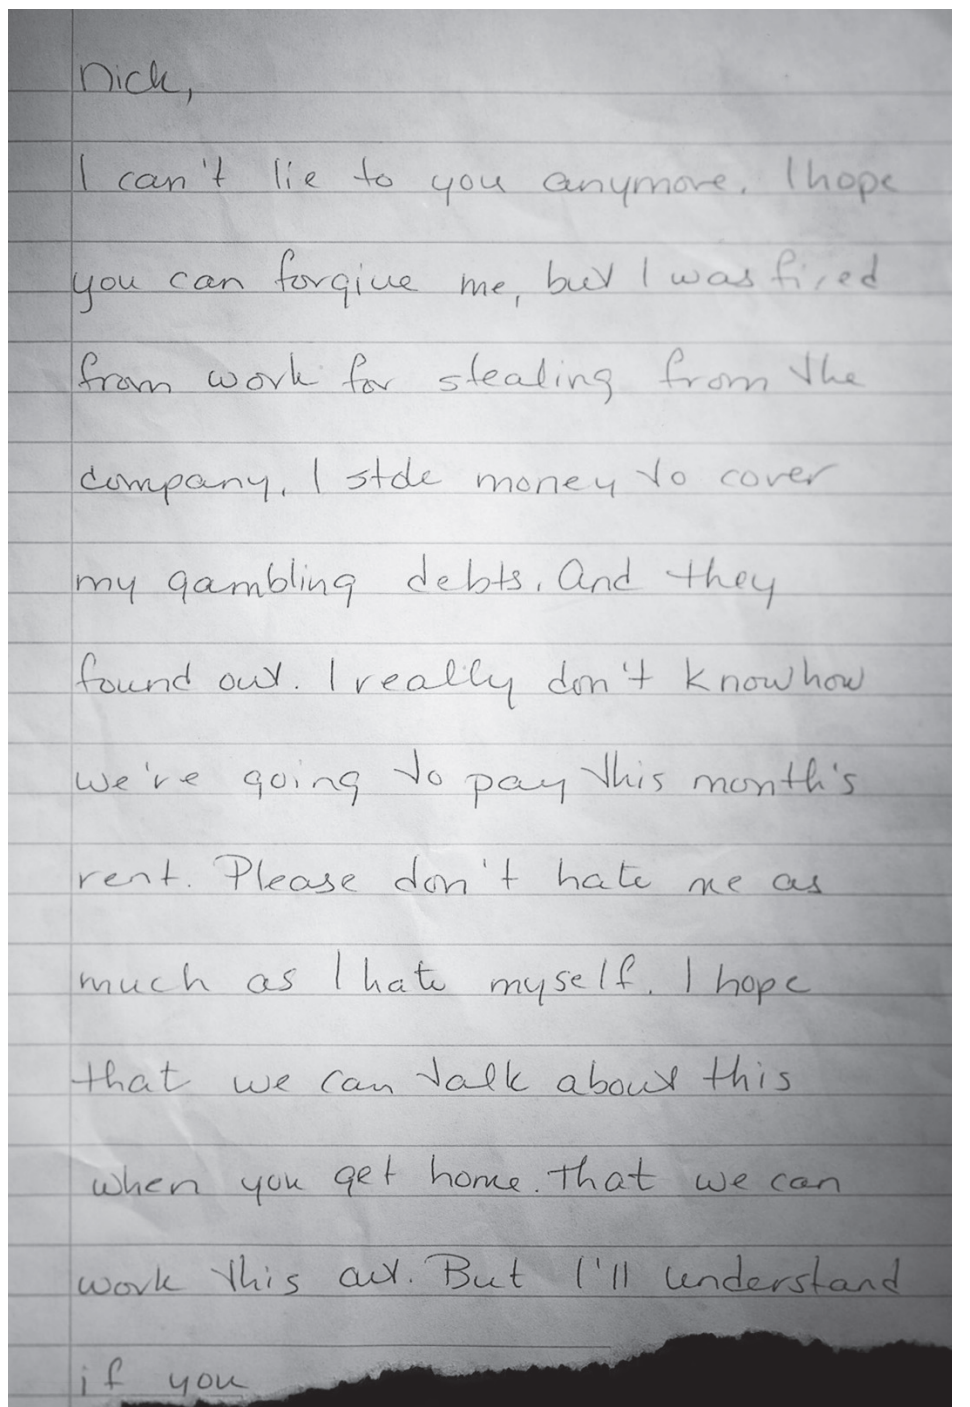 Nick,
I can't lie to you anymore. I hope
you can forgive me, but I was fired
from work for stealing from the
company. I stole money to cover
my gambling debts. And they
found out. I really don't know how
we're going to pay this month's
rent. Please don't hate me as
much as I hate myself. I hope
that we can talk about this
when you get home. That we can
work this out. But I'll understand
if you